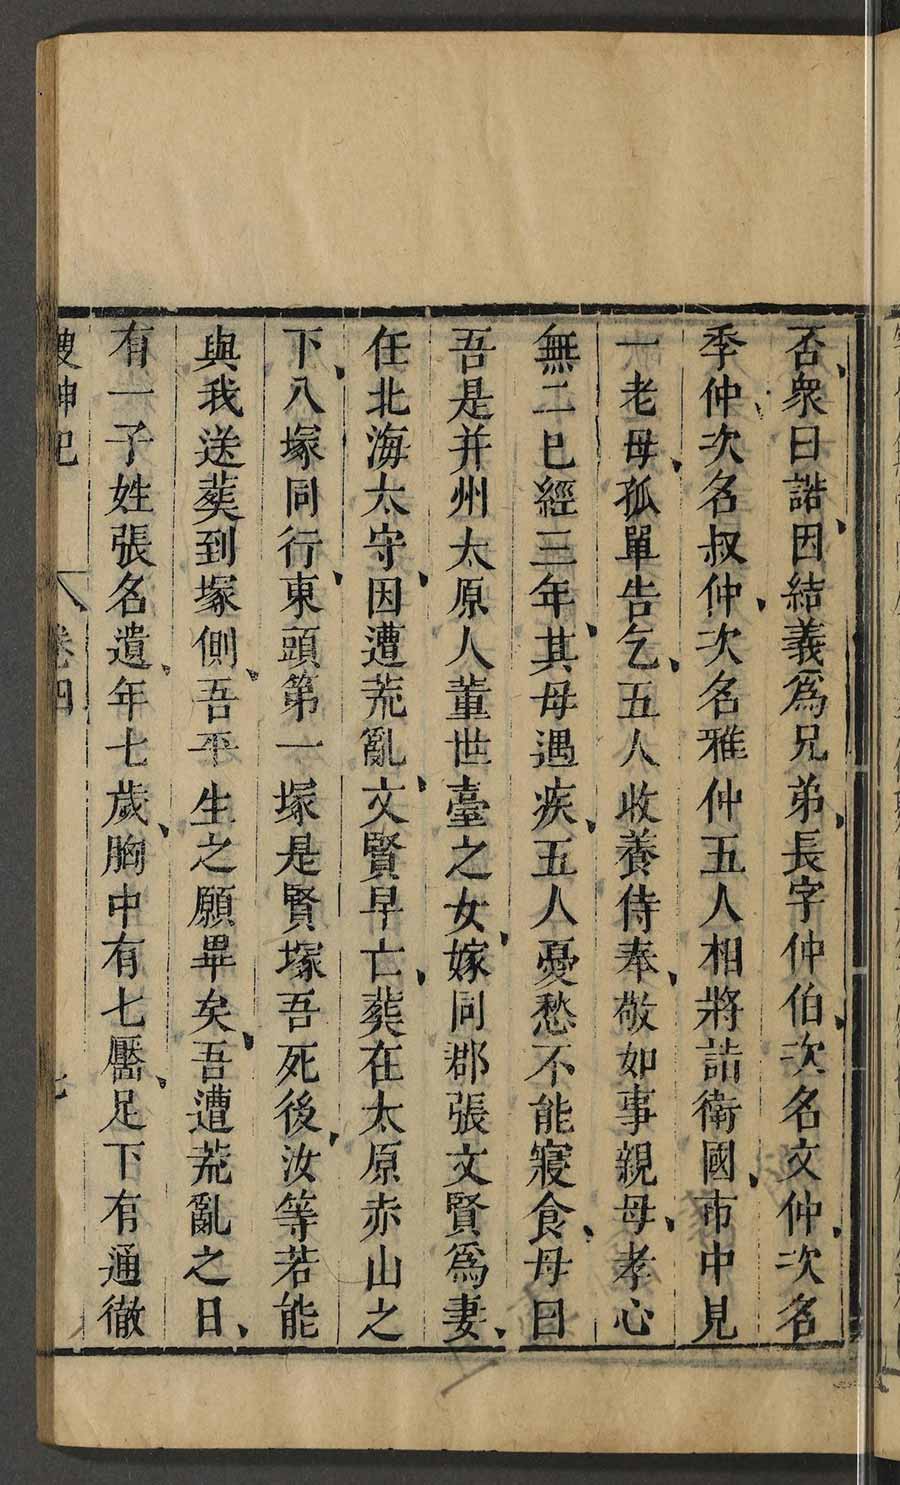 否衆曰諾因結義爲兄弟長字仲伯次名文仲次名
季仲次名叔仲次名雅仲五人相將詣衛國市中見
一老母孤單告乞五人收養侍奉敬如事親母孝心
無二已經三年其母遇疾五人憂愁不能寢食母曰
吾是并州太原人董世臺之女嫁同郡張文賢爲妻
任北海太守因遭荒亂文賢早亡葬在太原赤山之
下八塚同行東頭第一塚是賢塚吾死後汝等若能
與我送葬到塚側吾平生之願畢矣吾遭荒亂之日
有一子姓張名遺年七歲胸中有七靨足下有通徹
搜神記 卷四 七